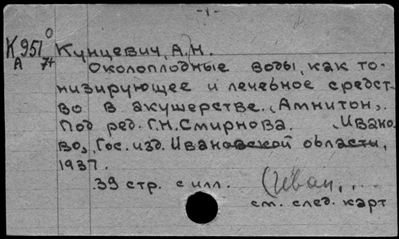 -1-
К 951 0
А 74
Кунцевич, А.Н.
Околоплодные воды, как то-
низирующее и лечебное средст-
во в акушерстве. "Амнитон".
Под ред. Г.Н. Смирнова. Ивано-
во, Гос. изд. Ивановской области,
1937.
39 стр. с илл. (Иван....
см. след. карт